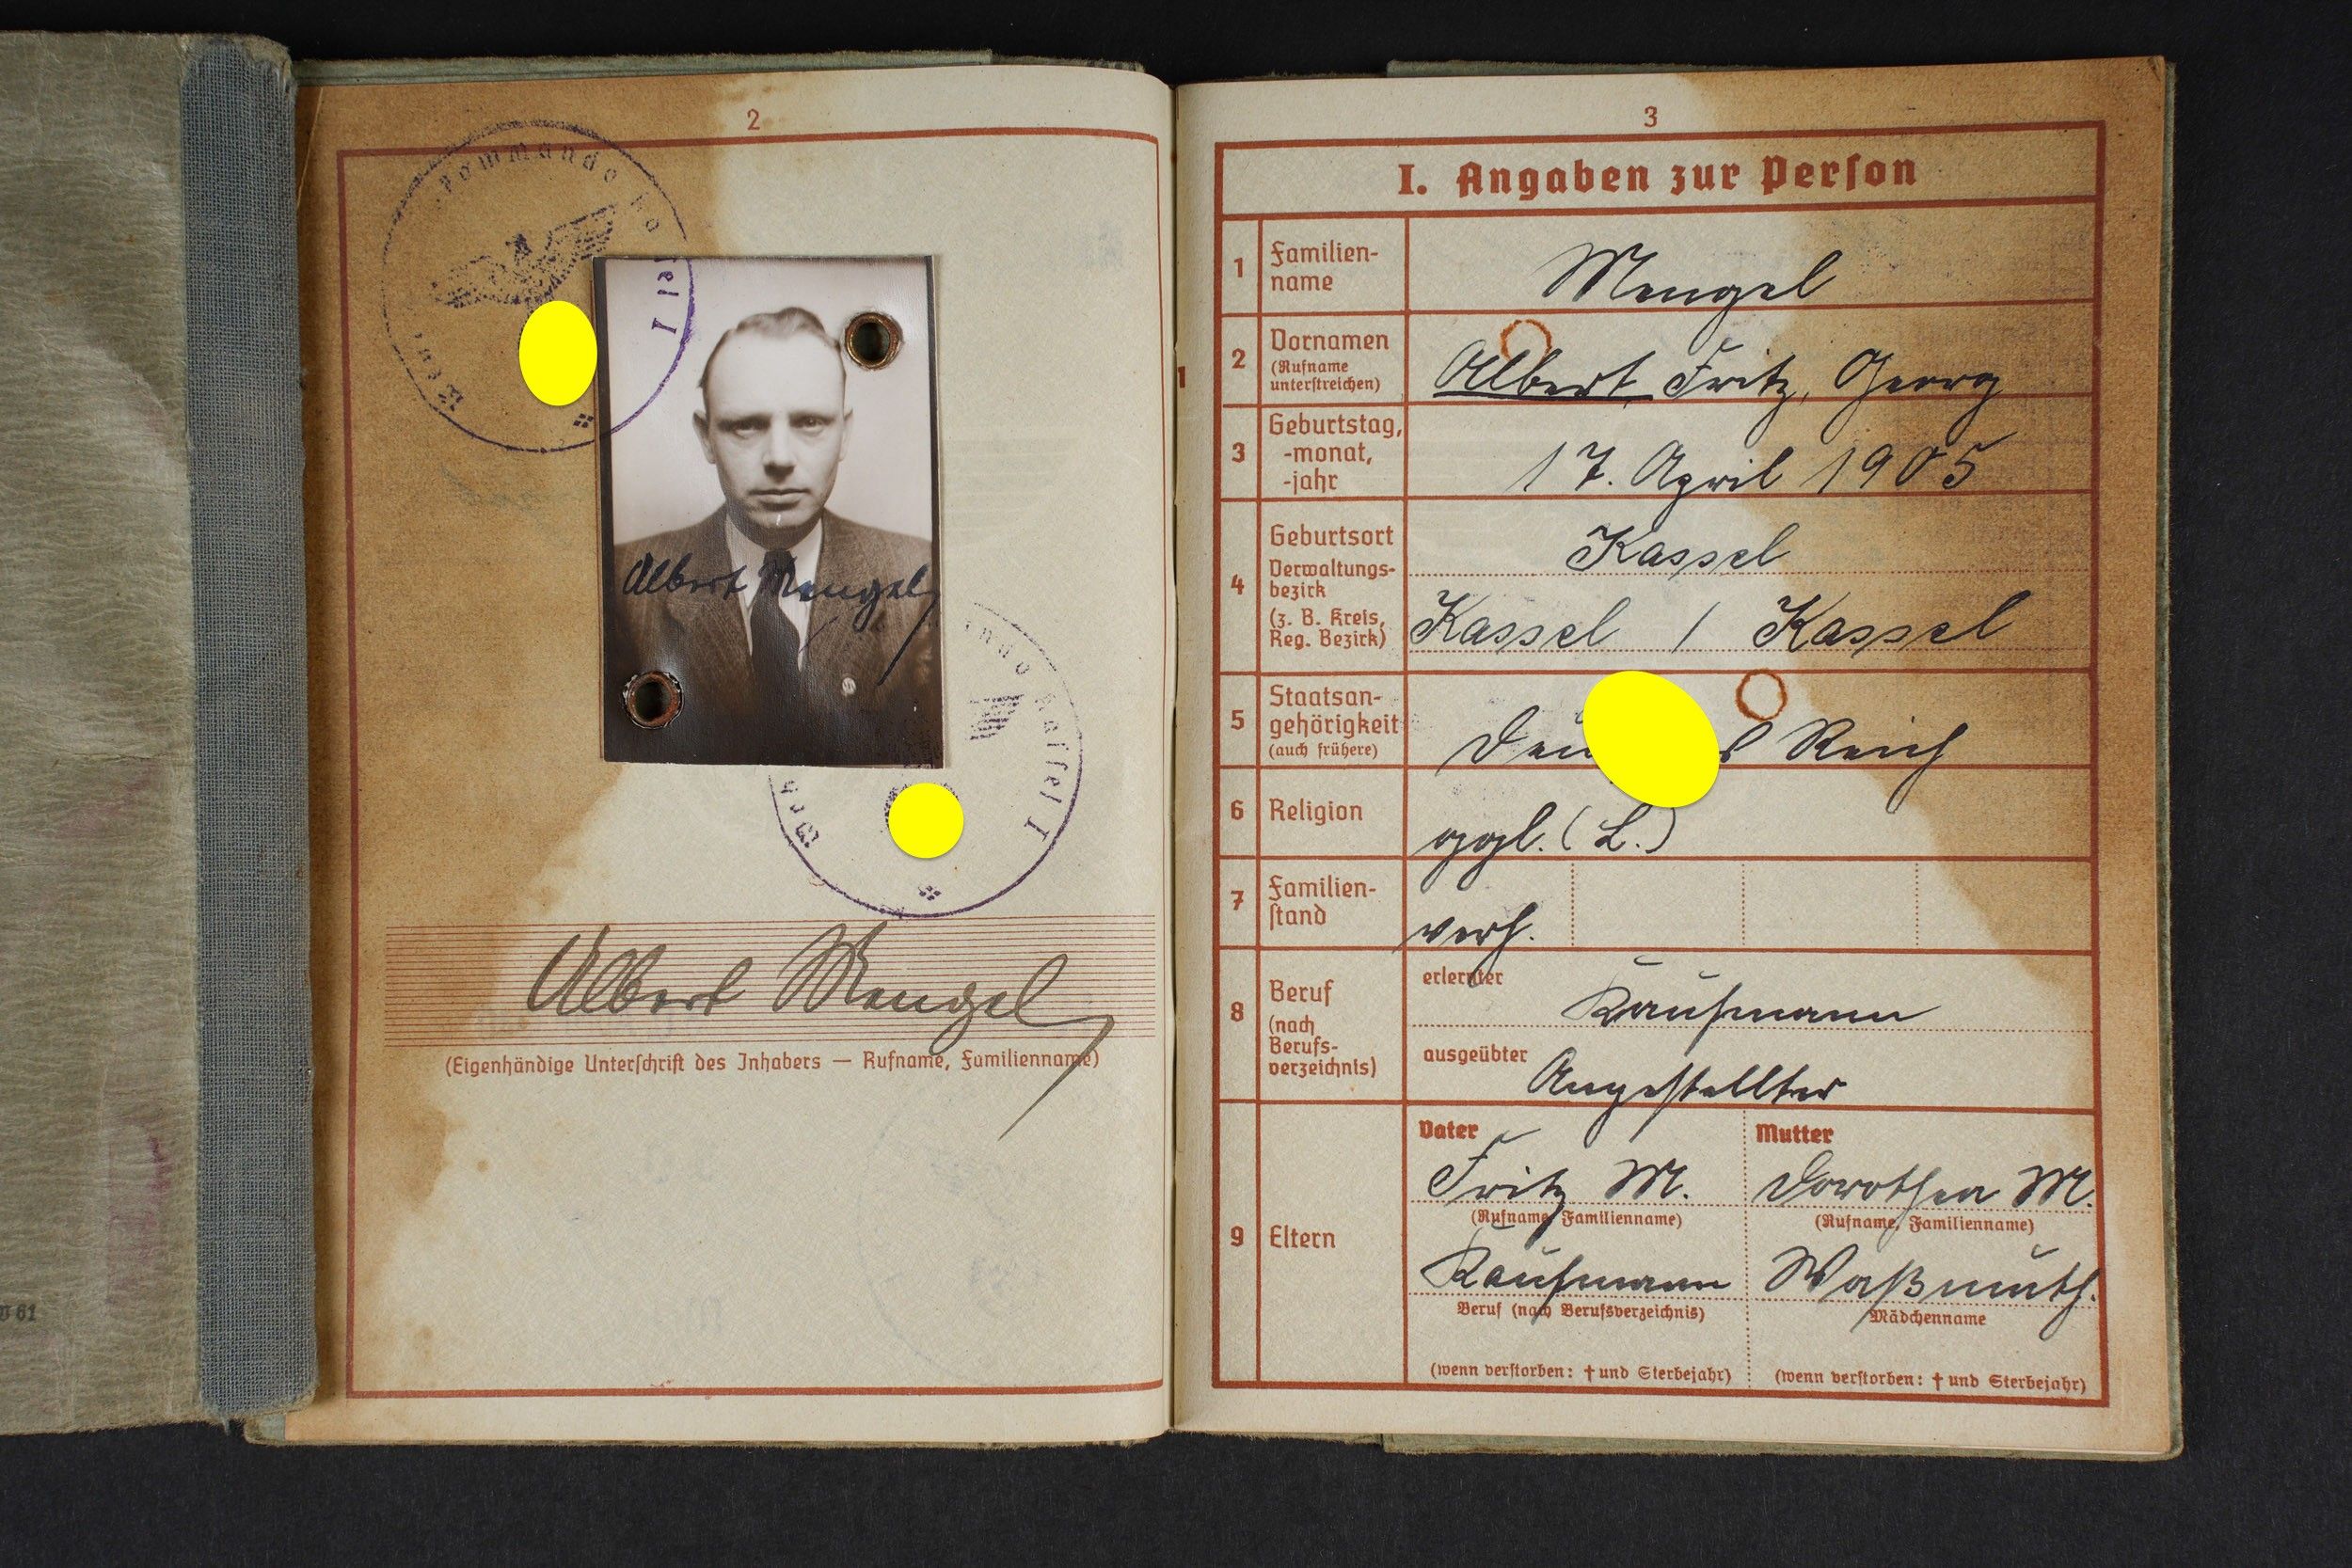 2
Kommando Kassel I
Albert Mengel
Kassel I
Albert Mengel
(Eigenhändige Unterschrift des Inhabers — Rufname, Familienname)
W 61
3
I. Angaben zur Person
1 Familien-
name
Mengel
2 Vornamen
(Rufname
unterstreichen)
Albert Fritz, Georg
3 Geburtstag,
-monat,
-jahr
17. April 1905
4 Geburtsort
Verwaltungs-
bezirk
(z. B. Kreis,
Reg. Bezirk)
Kassel
Kassel / Kassel
5 Staatsan-
gehörigkeit
(auch frühere)
Reich
6 Religion
ggl. (L.)
7 Familien-
stand
verh.
8 Beruf
(nach
Berufs-
verzeichnis)
erlernter
Kaufmann
ausgeübter
Angestellter
9 Eltern
Vater
Fritz M.
(Rufname, Familienname)
Kaufmann
Beruf (nach Berufsverzeichnis)
(wenn verstorben: † und Sterbejahr)
Mutter
Dorothea M.
(Rufname, Familienname)
Waßmuth.
Mädchenname
(wenn verstorben: † und Sterbejahr)